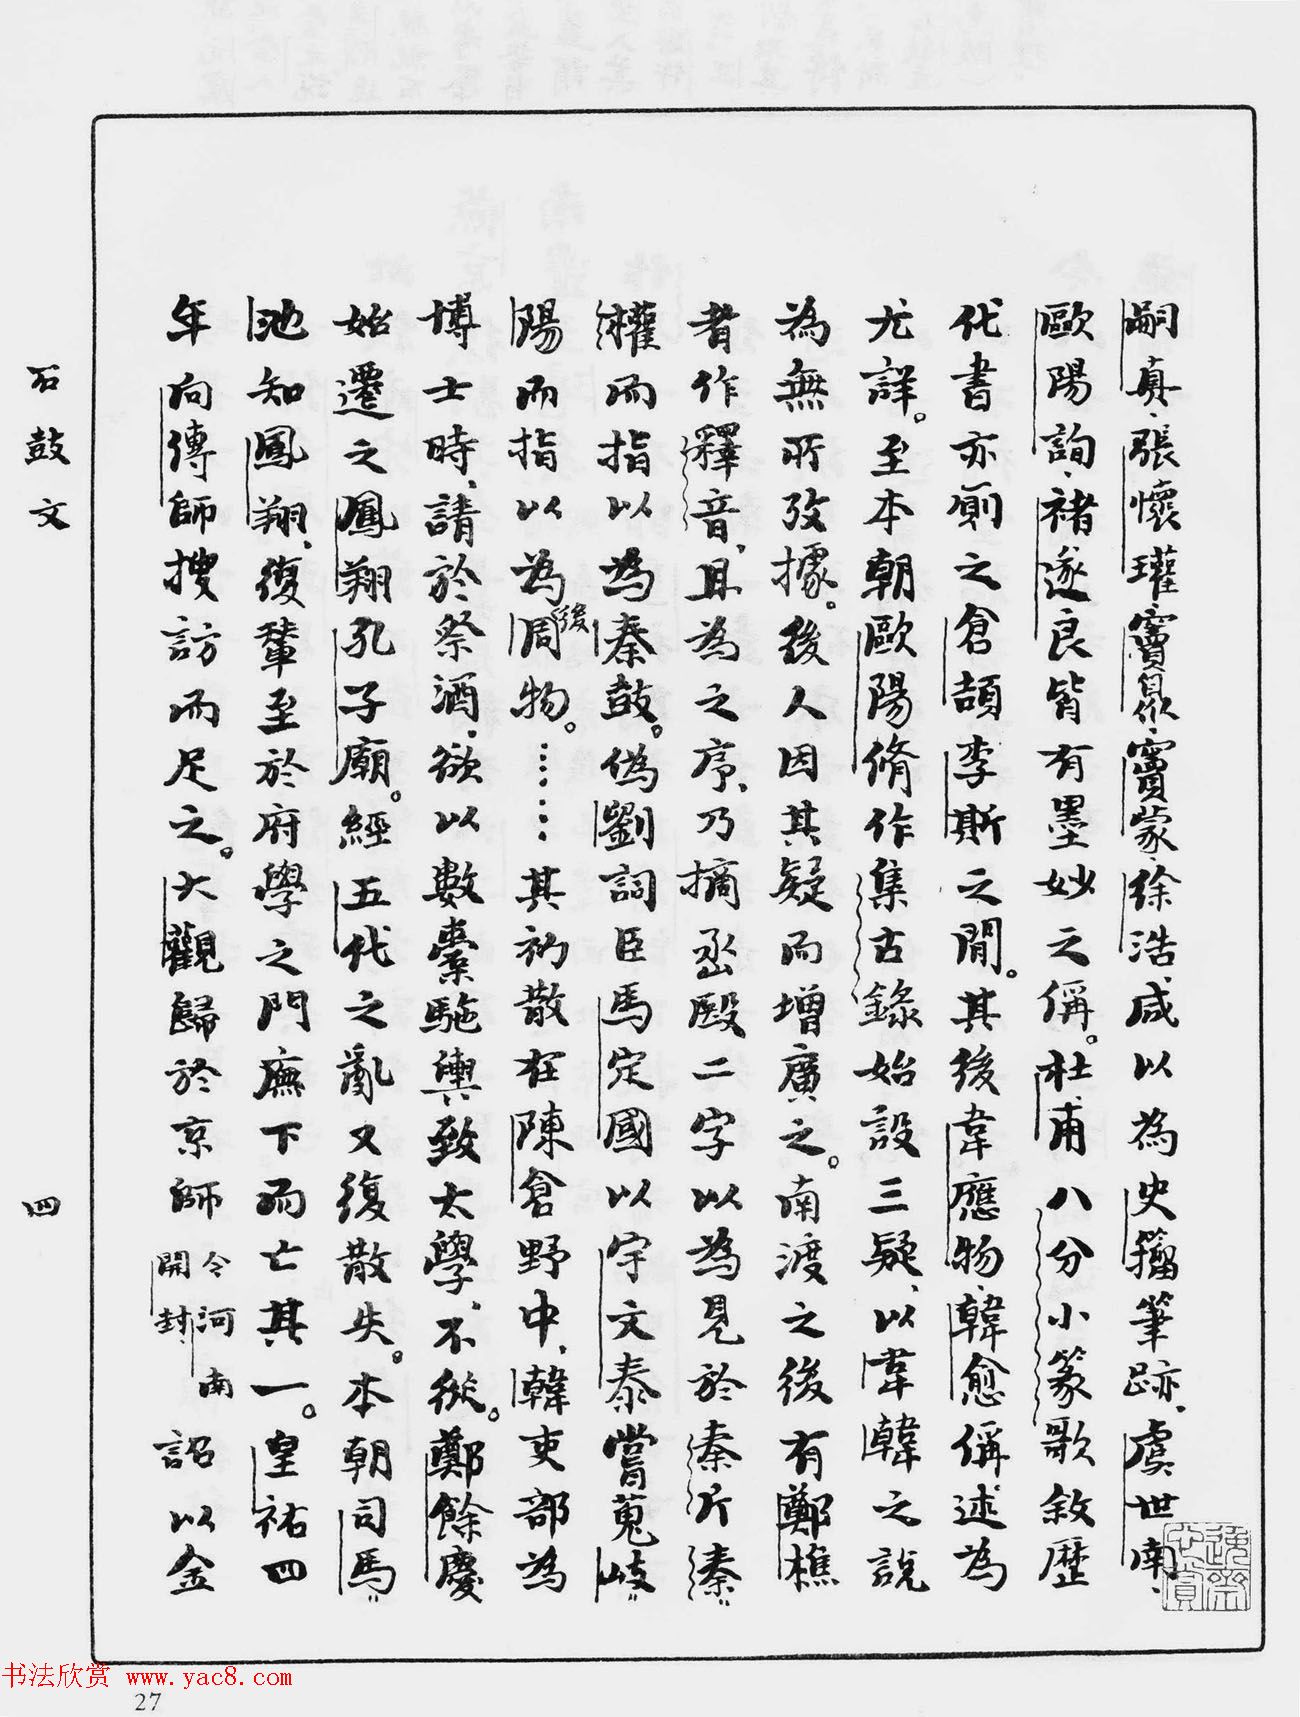 嗣真、張懷瓘、竇臮、竇蒙、徐浩、咸以為史籀筆跡、虞世南、
歐陽詢、褚遂良皆有墨妙之偁。杜甫八分小篆歌敘歷
代書亦厠之倉頡李斯之閒。其後韋應物、韓愈偁述為
尤詳。至本朝歐陽脩作集古錄始設三疑、以韋韓之說
為無所攷據。後人因其疑而增廣之。南渡之後有鄭樵
者作釋音、且為之序、乃摘丞殹二字以為見於秦斤秦
權而指以為秦鼓。偽劉詞臣馬定國以宇文泰嘗蒐岐
陽而指以為後周物。……其初散在陳倉野中、韓吏部為
博士時、請於祭酒、欲以數橐駞輿致太學、不從。鄭餘慶
始遷之鳳翔孔子廟。經五代之亂又復散失。本朝司馬
池知鳳翔、復輦至於府學之門廡下而亡其一。皇祐四
年向傳師搜訪而足之。大觀歸於京師今河南開封詔以金
石鼓文
四
27
书法欣赏 www.yac8.com